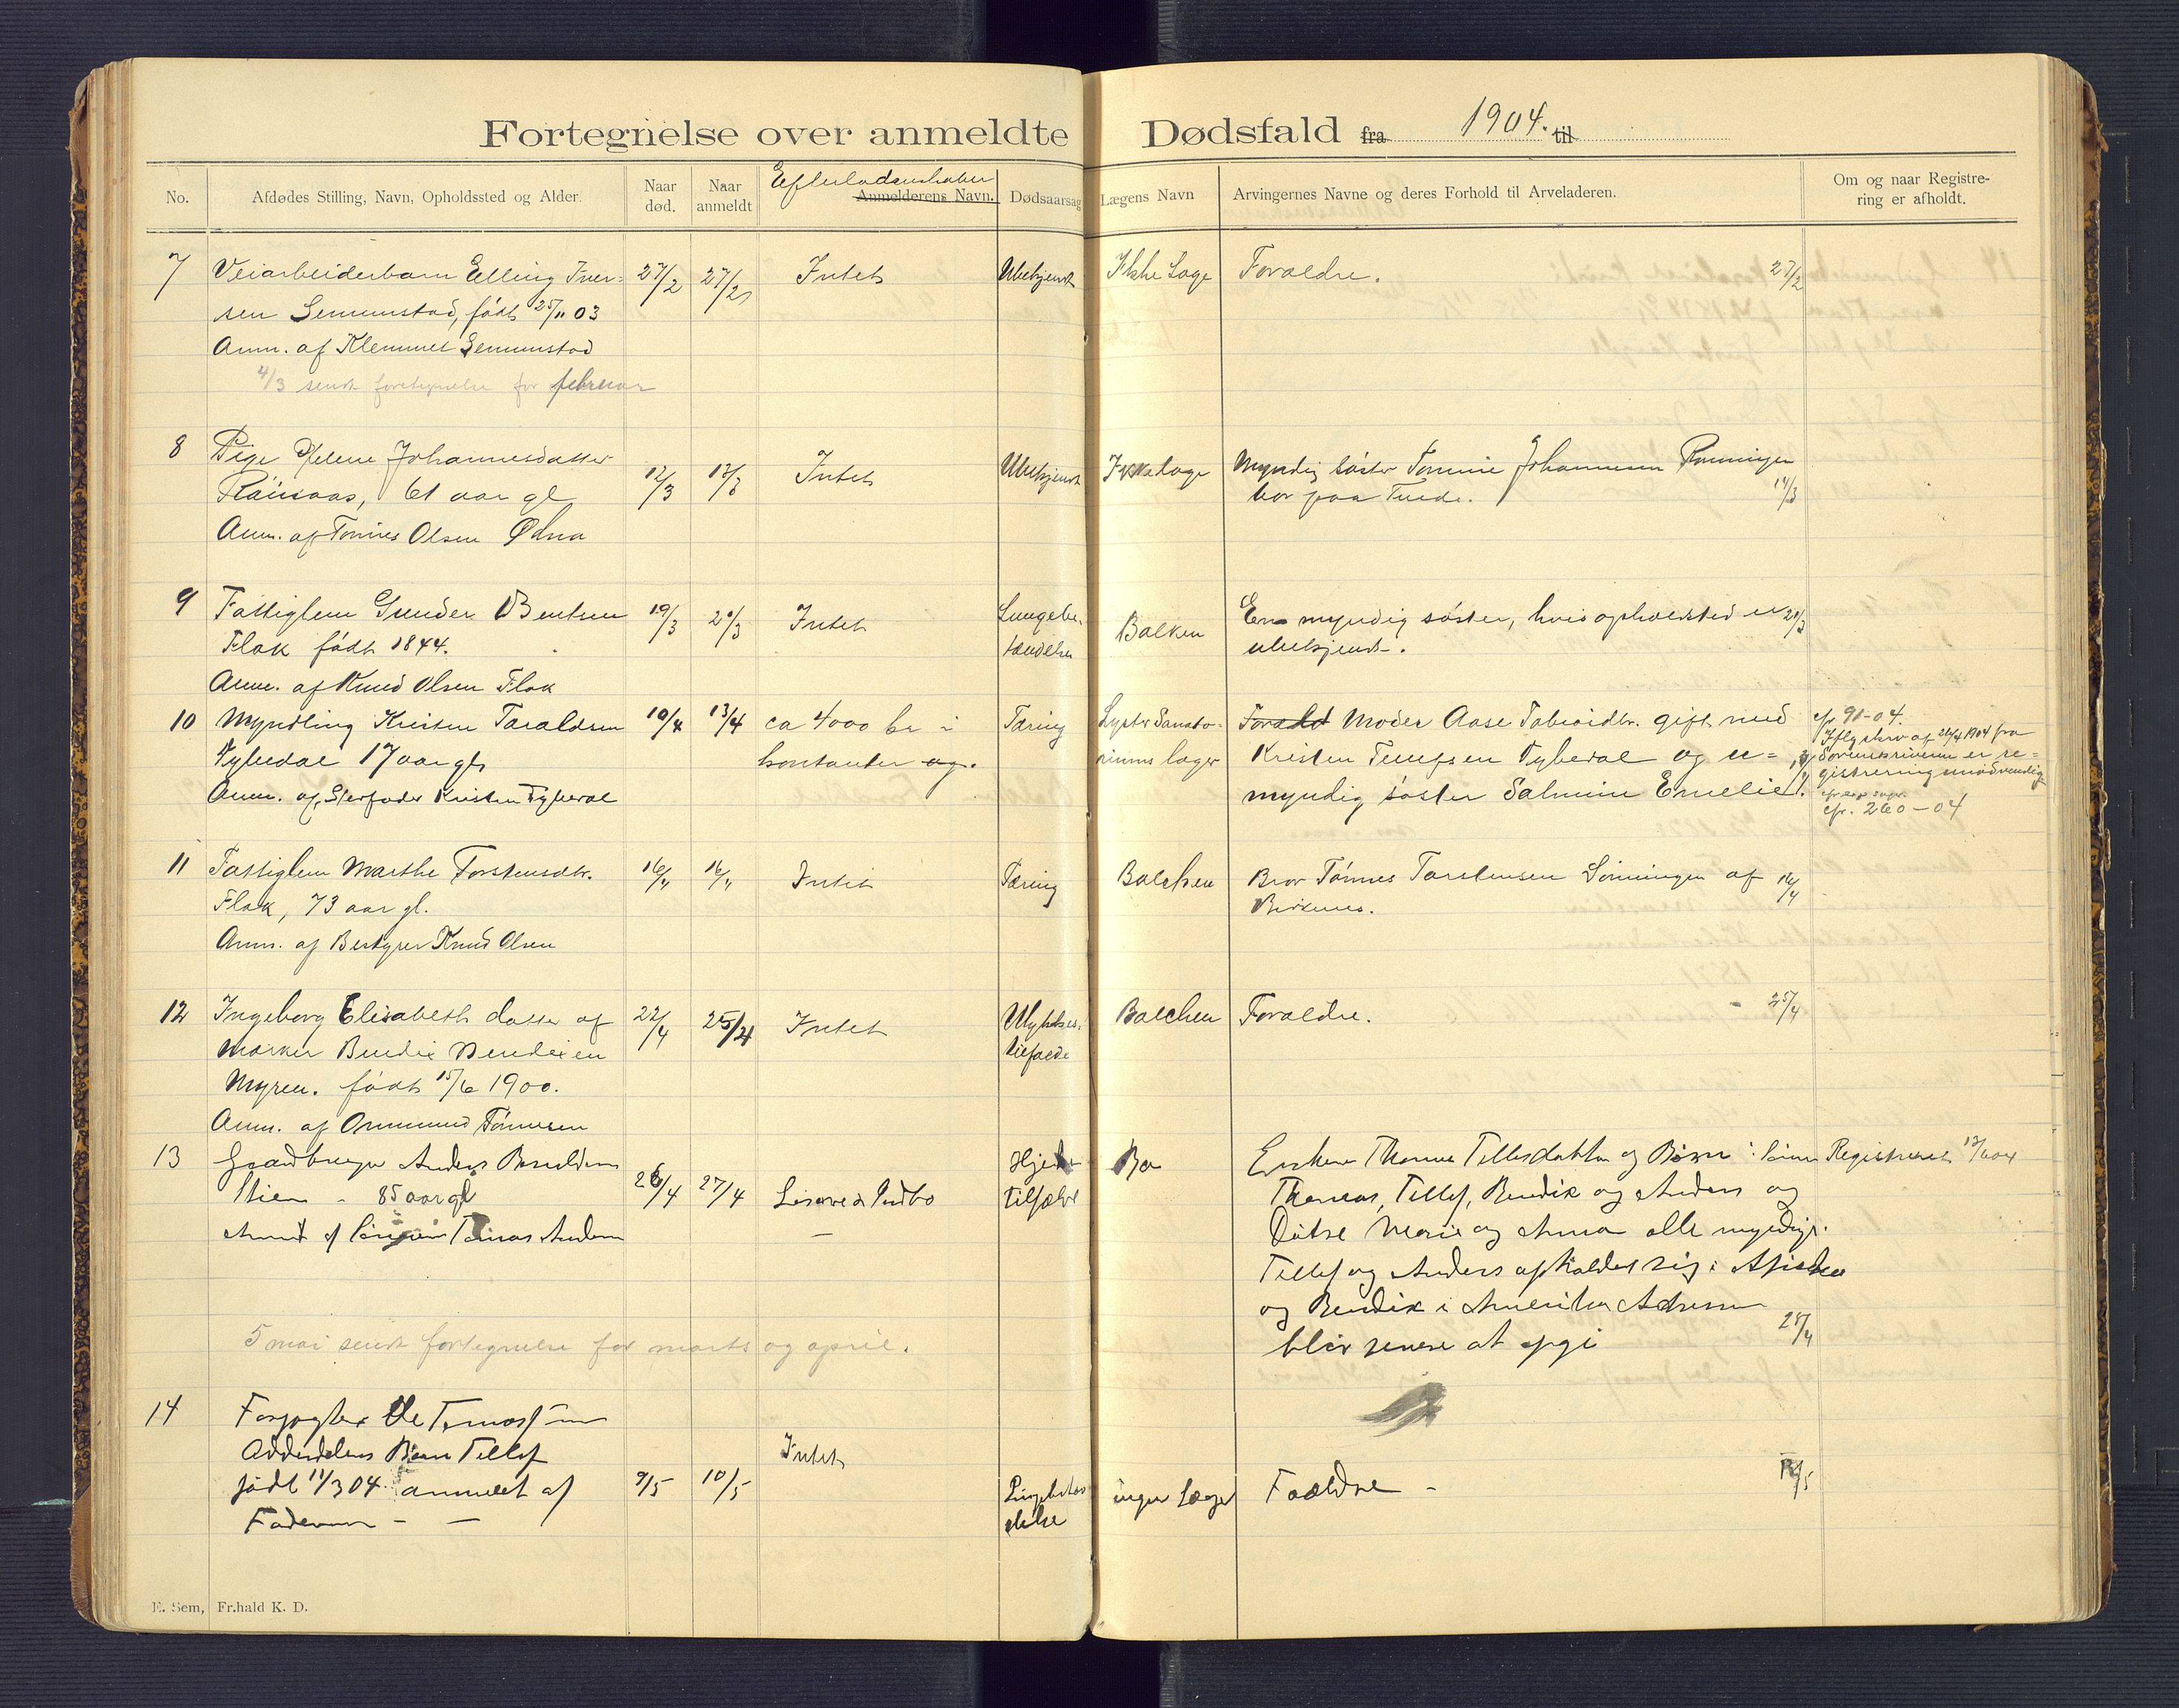 Fortegnelse over anmeldte Dødsfald fra 1904. til
No.
Afdødes Stilling, Navn, Opholdssted og Alder.
Naar død.
Naar anmeldt
Efterladenskaber
Anmelderens Navn.
Dødsaarsag
Lægens Navn
Arvingernes Navne og deres Forhold til Arveladeren.
Om og naar Registre-
ring er afholdt.
7 Veiarbeiderbarn Elling Iver- 27/2 27/2 Intet Ubekjendt Ikke Læge Forældre. 27/2
sen Senumstad, født 25/11 03
Anm. af Klemmet Senumstad
4/3 sendt fortegnelse for februar
8 Pige Helene Johannesdatter
61 aar gl 12/3 13/3 Intet Ubekjendt Ikke læge Myndig søster Johannesen
bor paa 14/3
Anm. af Tønnes Olsen Ødna
9 Fattiglem Gunder Bentsen 19/3 20/3 Intet Lungebe- Balken En myndig søster, hvis opholdsted er 20/3
Flak født 1844. tændelse ubekjendt.
Anm. af Knud Olsen Flak
10 Myndling Kristen Taraldsen 10/4 13/4 ca 4000 kr i Tæring Lyster Sanato- Foræld Moder Aase Tobiasdtr. gift med cfr 91-04.
Tveide 17 aar gl kontanter og. riums læge Kristen Tveide og u-
Anm. af Stedfader Kristen
myndig søster Salmine Emelie.
Ifflg skrv af 26/4 1904 fra
Sorenskriveren er re-
gistrering unødvendig
cfr. 260-04
11 Fattiglem Marthe Torstensdtr. 16/4 16/4 Intet Tæring Balchen Bror Tønnes Torstensen Lønningen af 16/4
Flak, 73 aar gl. Birkenes.
Anm. af Bestyrer Knud Olsen
12 Ingeborg Elisabeth datter af 22/4 25/4 Intet Ulykkes- Balchen Forældre. - 25/4
Bendix Bendixen tilfælde
Myren. født 15/6 1900.
Anm. af Ommund Tønnesen
13 Gaardbruger Anders Hjerte- Enken Tellefsdatter og Børn: Registreret 13/6 04
Stien - 85 aar gl 26/4 27/4 Løsøre & Indbo tilfælde Thomas, Tellef, Bendix og Anders og
Anmeldt af Sønnen Tomas Anders
Døtre Marie og Anna alle myndige.
Tellef og Anders opholder sig i Afrika
og Bendix i Amerika Adressen
blir senere at opgi 28/4
5 mai sendt fortegnelse for marts og april.
14 Forpagter Ole
Barn Tellef Intet
født 11/3 04 anmeldt af 9/5 10/5 ingen Læge Forældre - /5
Faderen - -
E. Sem, Fr.hald K. D.